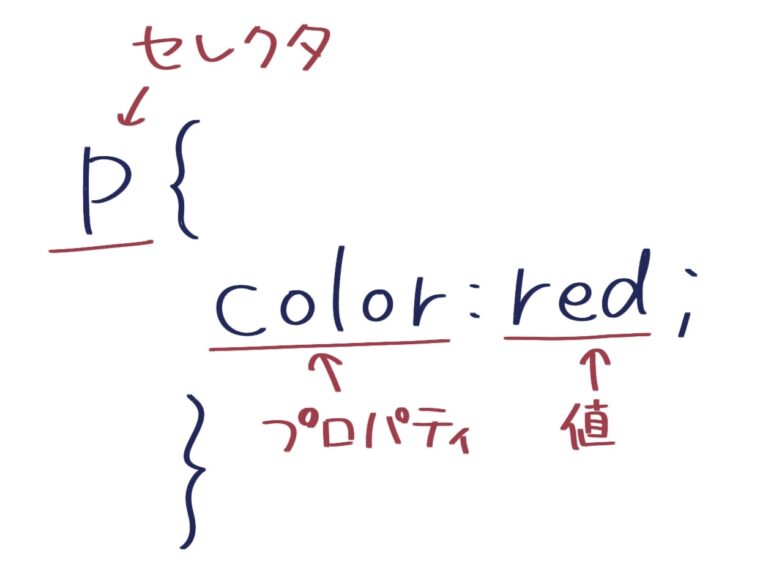 セレクタ
p {
color : red ;
プロパティ 値
}